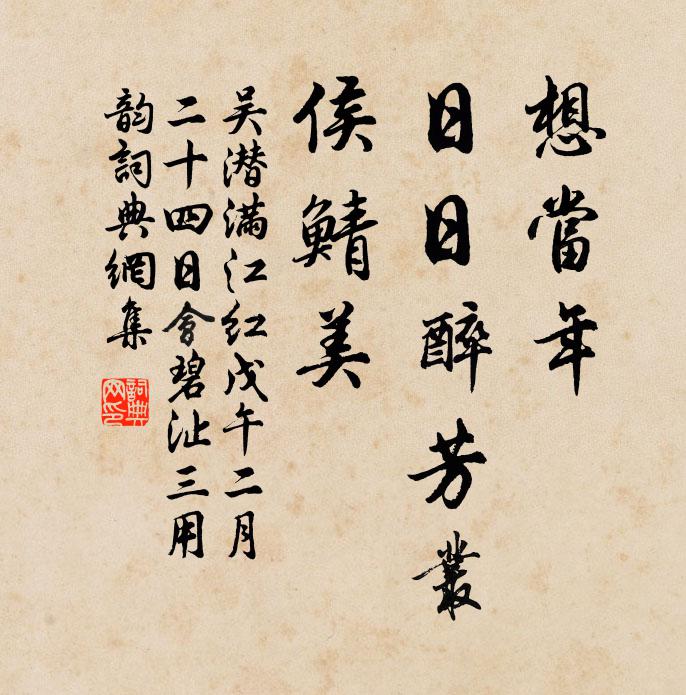 想當年
日日醉芳叢
侯鯖美
吴潜滿江紅戊午二月
二十四日會碧沚三用
韵詞典網集
詞典網印